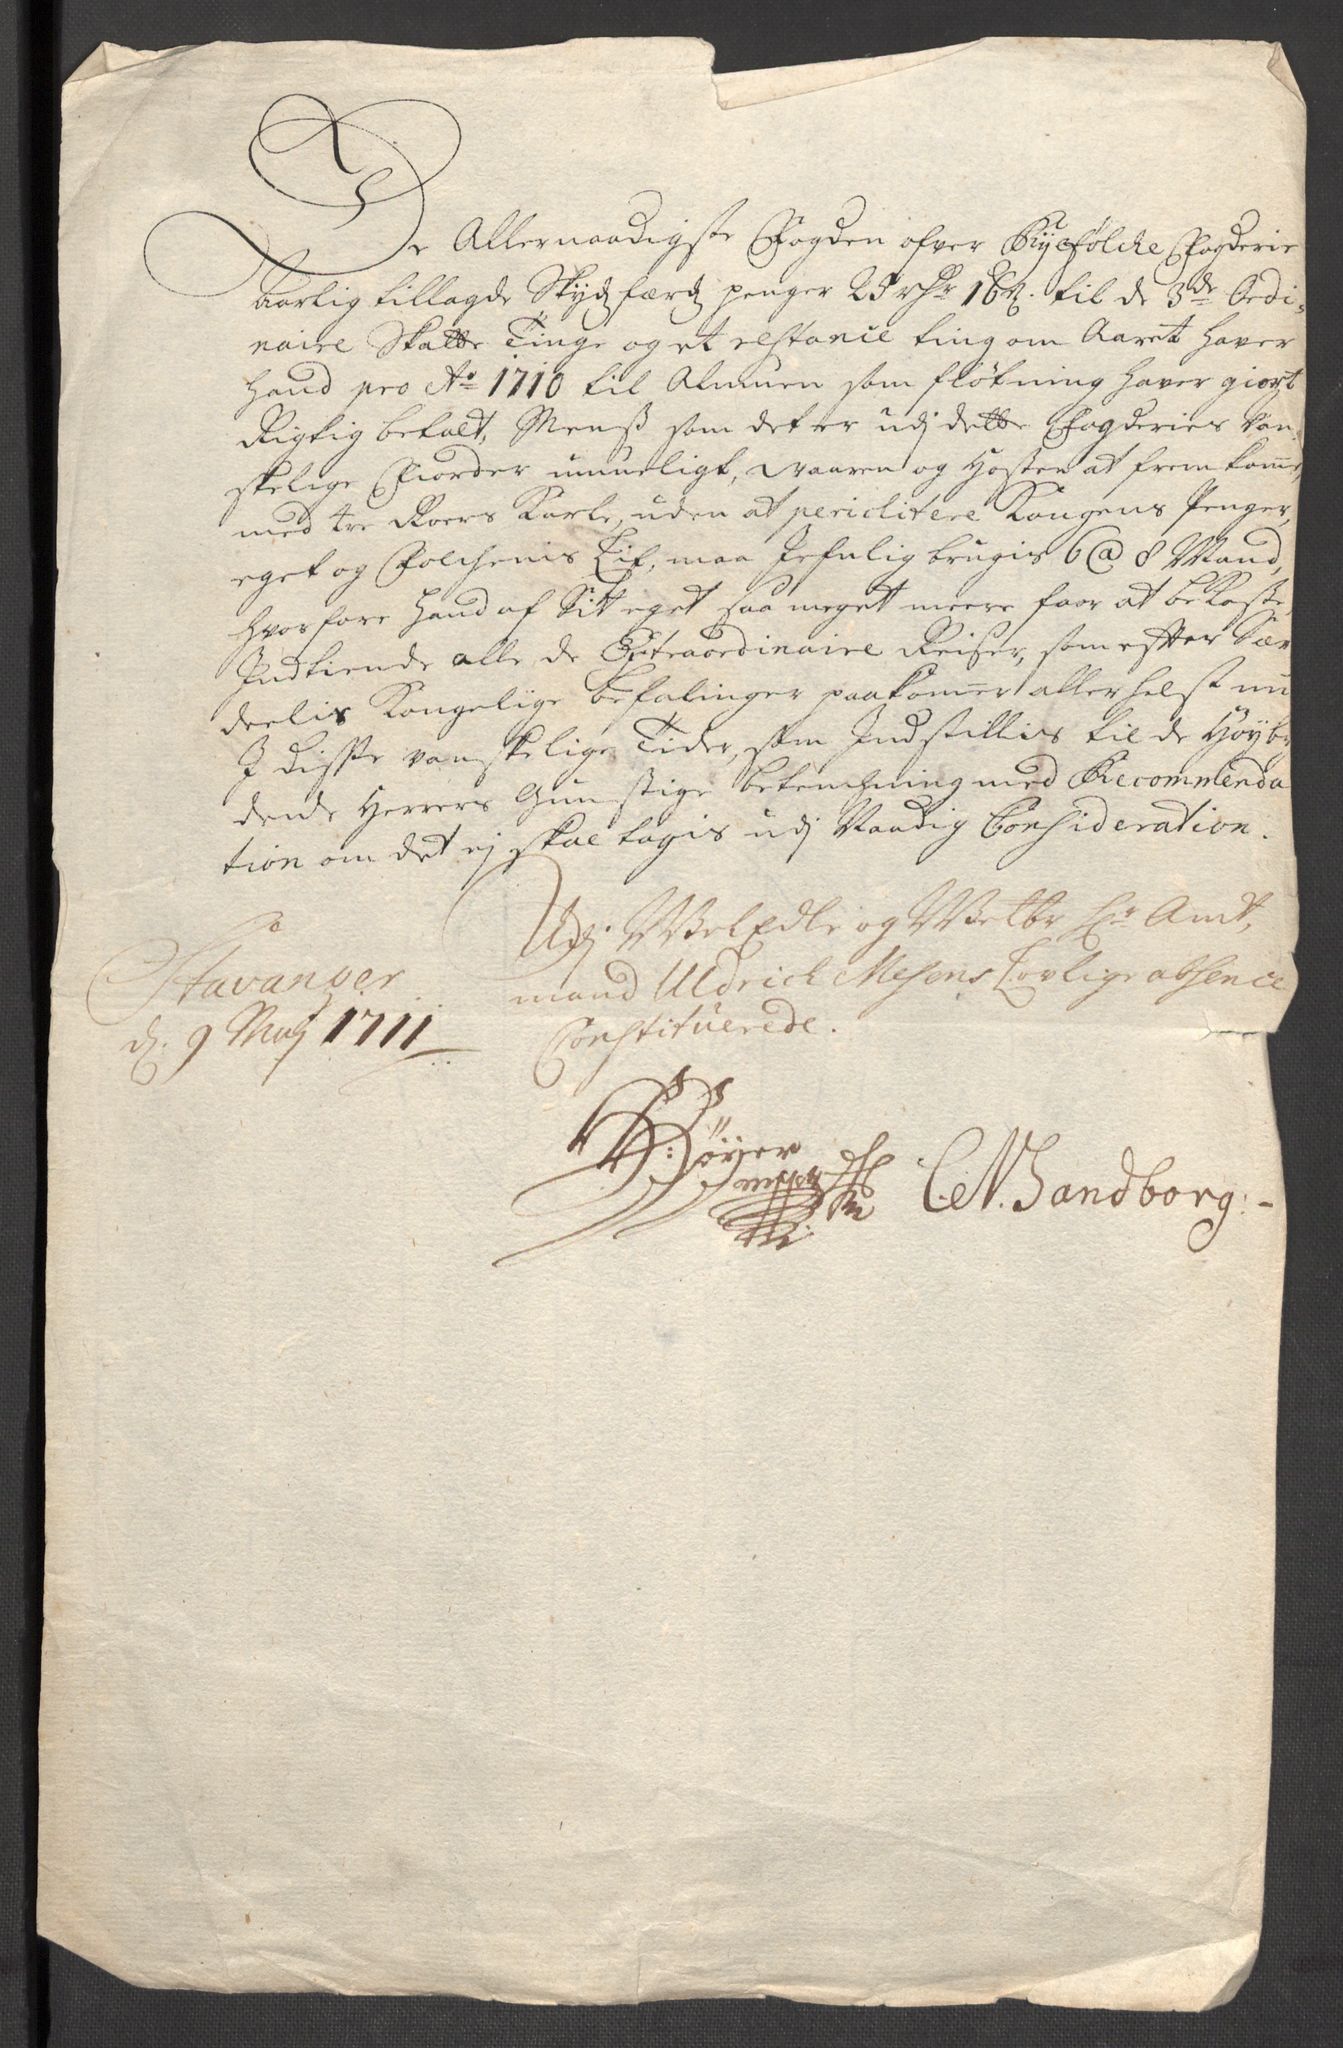 De Allernaadigste Fogden ofver Ryefølche Fogderie
Aarlig tillagde Skydz færdz penger 25 rdr 16 s. til de 3de Ordi-
naire Skatte Tinge og et ting om Aaret haver
hand pro Ao 1710 til Almuen som fløtning haver giort
Rigtig betalt, Menß som det er udj dette Fogderies Van-
skelige Fiorder umueligt, Vaaren og Høsten at fremkomme,
med tre Roers Karle, uden at periclitere Kongens Penger,
eget og Folchenis Lif, maa Jefnlig brugis 6 @ 8 Mand,
hvorfore hand af Sit eget saa meget meere faar at bekoste,
alle de Extraordinaire Reiser, som efter Sær
deelis Kongelige befalinger paakomer allerhelst nu
J disse vanskelige Tider, som Jndstillis til de Høyby
dende Herrers Gunstige betenchning med Recommenda
tion om det ej skal tagis udj Naadig Consideration.
Udj WelEdle og Welbr Hr Amt,
mand Uldrich Mesons Lovlige absence
Constituerede.
Stavanger
d. 9 Maj 1711
Røyer
C. N. Sandborg:-